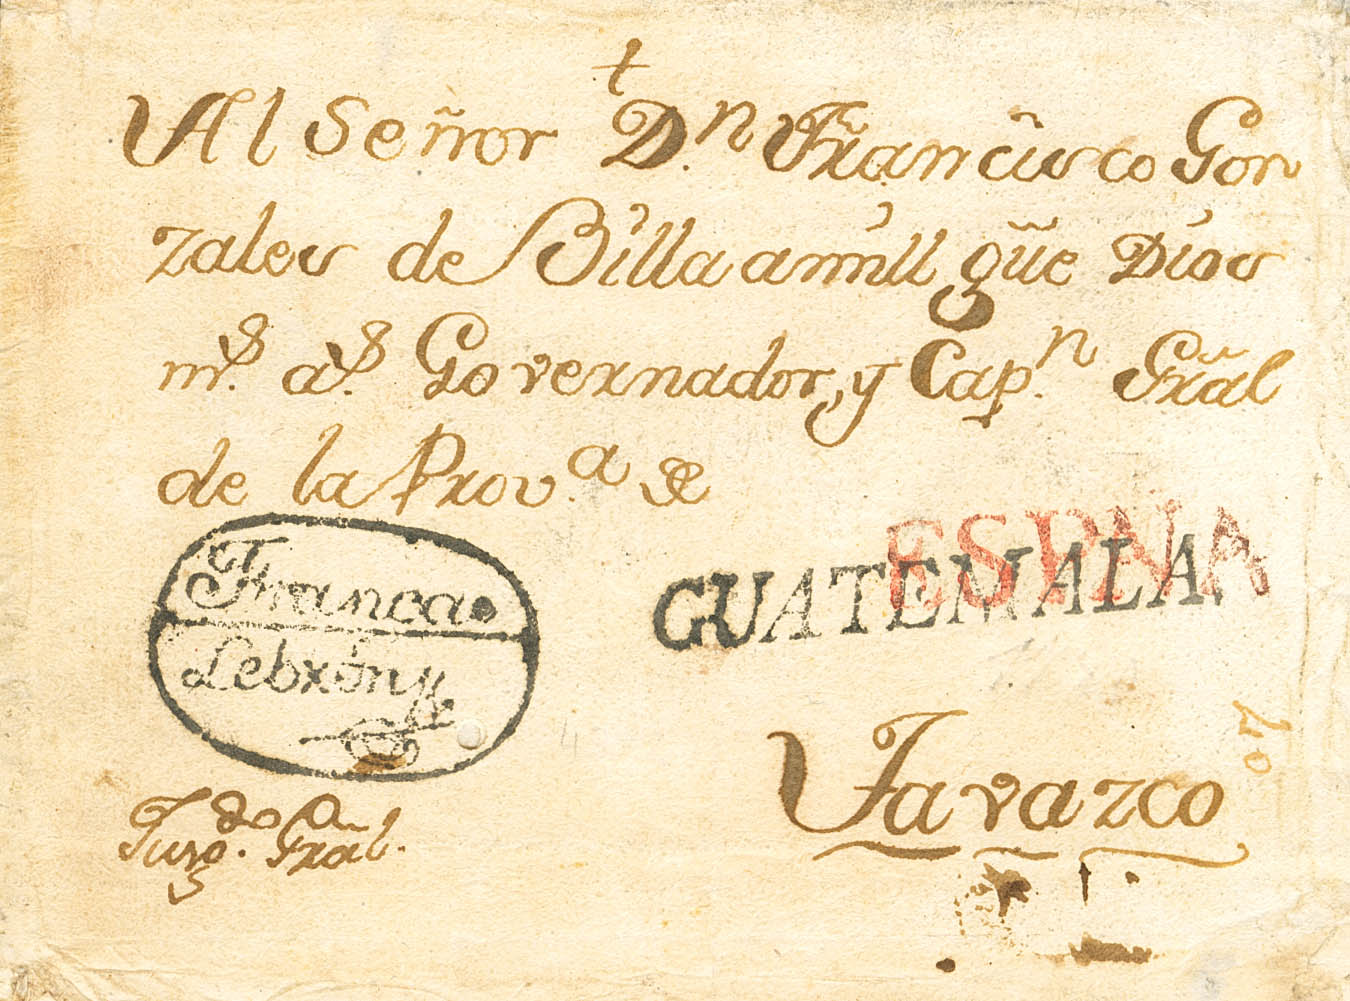 †
Al Señor D.n Fran.cisco Gon
zales de Billa amill que Dios
m.s a.s Governador, y Cap.n Gral
de la Prov.a &
Franca.
ESPNA
GUATEMALA.
Tavazco
Juzg.do Gral.